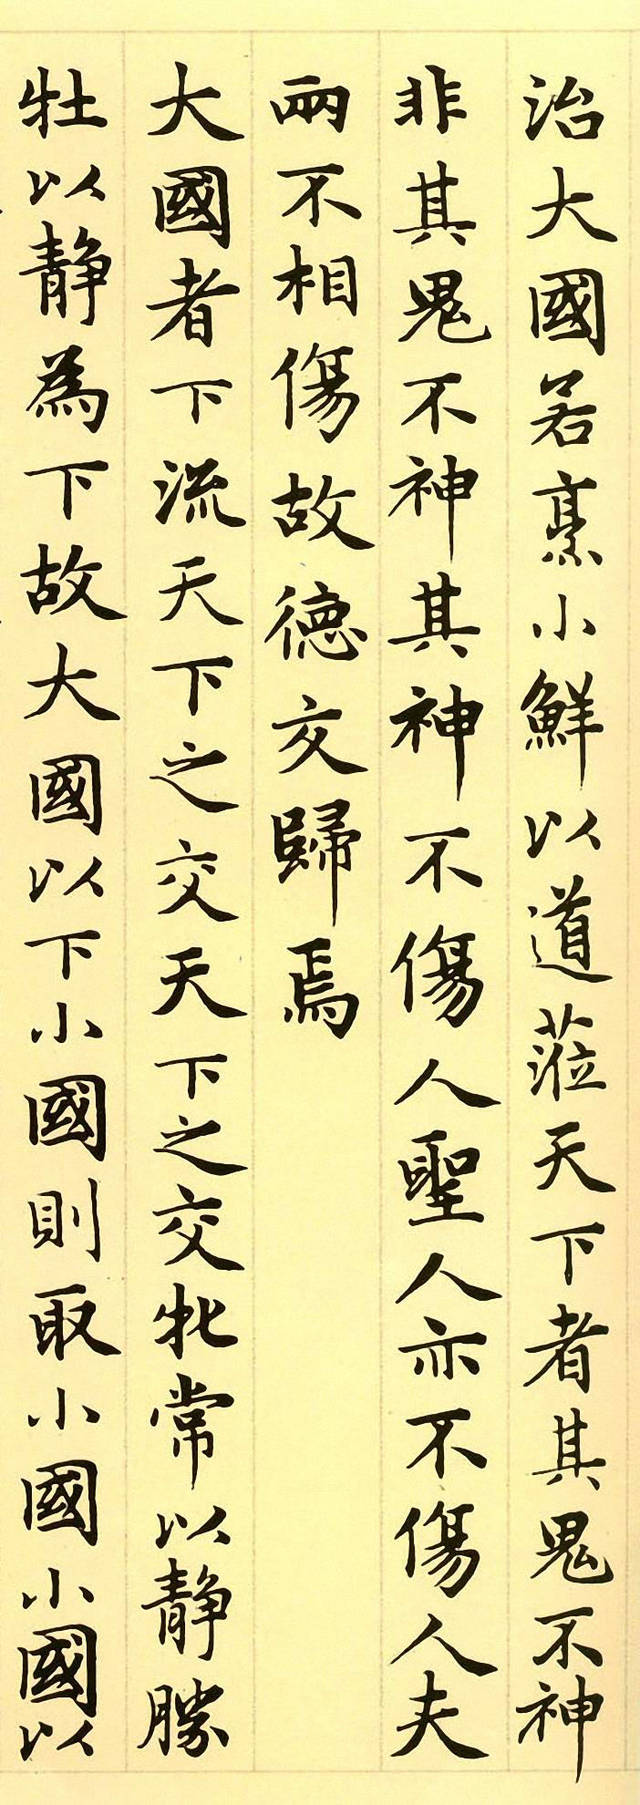 治大國若烹小鮮以道蒞天下者其鬼不神
非其鬼不神其神不傷人聖人亦不傷人夫
兩不相傷故德交歸焉
大國者下流天下之交天下之交牝常以靜勝
牡以靜為下故大國以下小國則取小國小國以